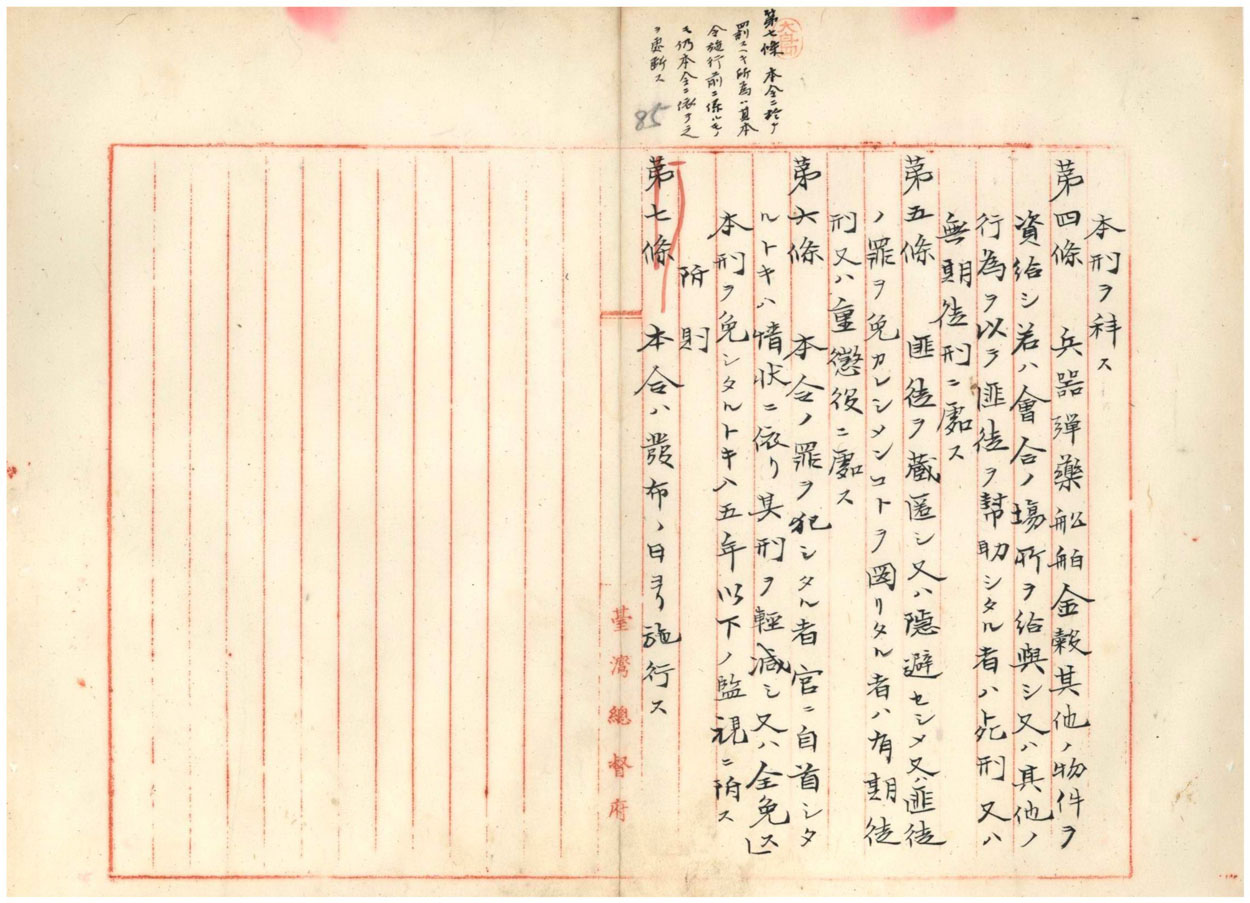 第七條 本令ニ於テ
罰スヘキ所爲ハ其本
令施行前ニ係ルモノ
モ仍本令ニ依テ之
ヲ處斷ス
85
本刑ヲ科ス
第四條 兵器彈藥船舶金穀其他ノ物件ヲ
資給シ若ハ會合ノ場所ヲ給與シ又ハ其他ノ
行為ヲ以テ匪徒ヲ幇助シタル者ハ死刑又ハ
無期徒刑ニ處ス
第五條 匪徒ヲ藏匿シ又ハ隱避セシメ又ハ匪徒
ノ罪ヲ免カレシメンコトヲ圖リタル者ハ有期徒
刑又ハ重懲役ニ處ス
第六條 本令ノ罪ヲ犯シタル者官ニ自首シタ
ルトキハ情状ニ依リ其刑ヲ輕減シ又ハ全免ス
本刑ヲ免シタルトキハ五年以下ノ監視ニ附ス
附則
第七條 本令ハ發布ノ日ヨリ施行ス
臺灣總督府